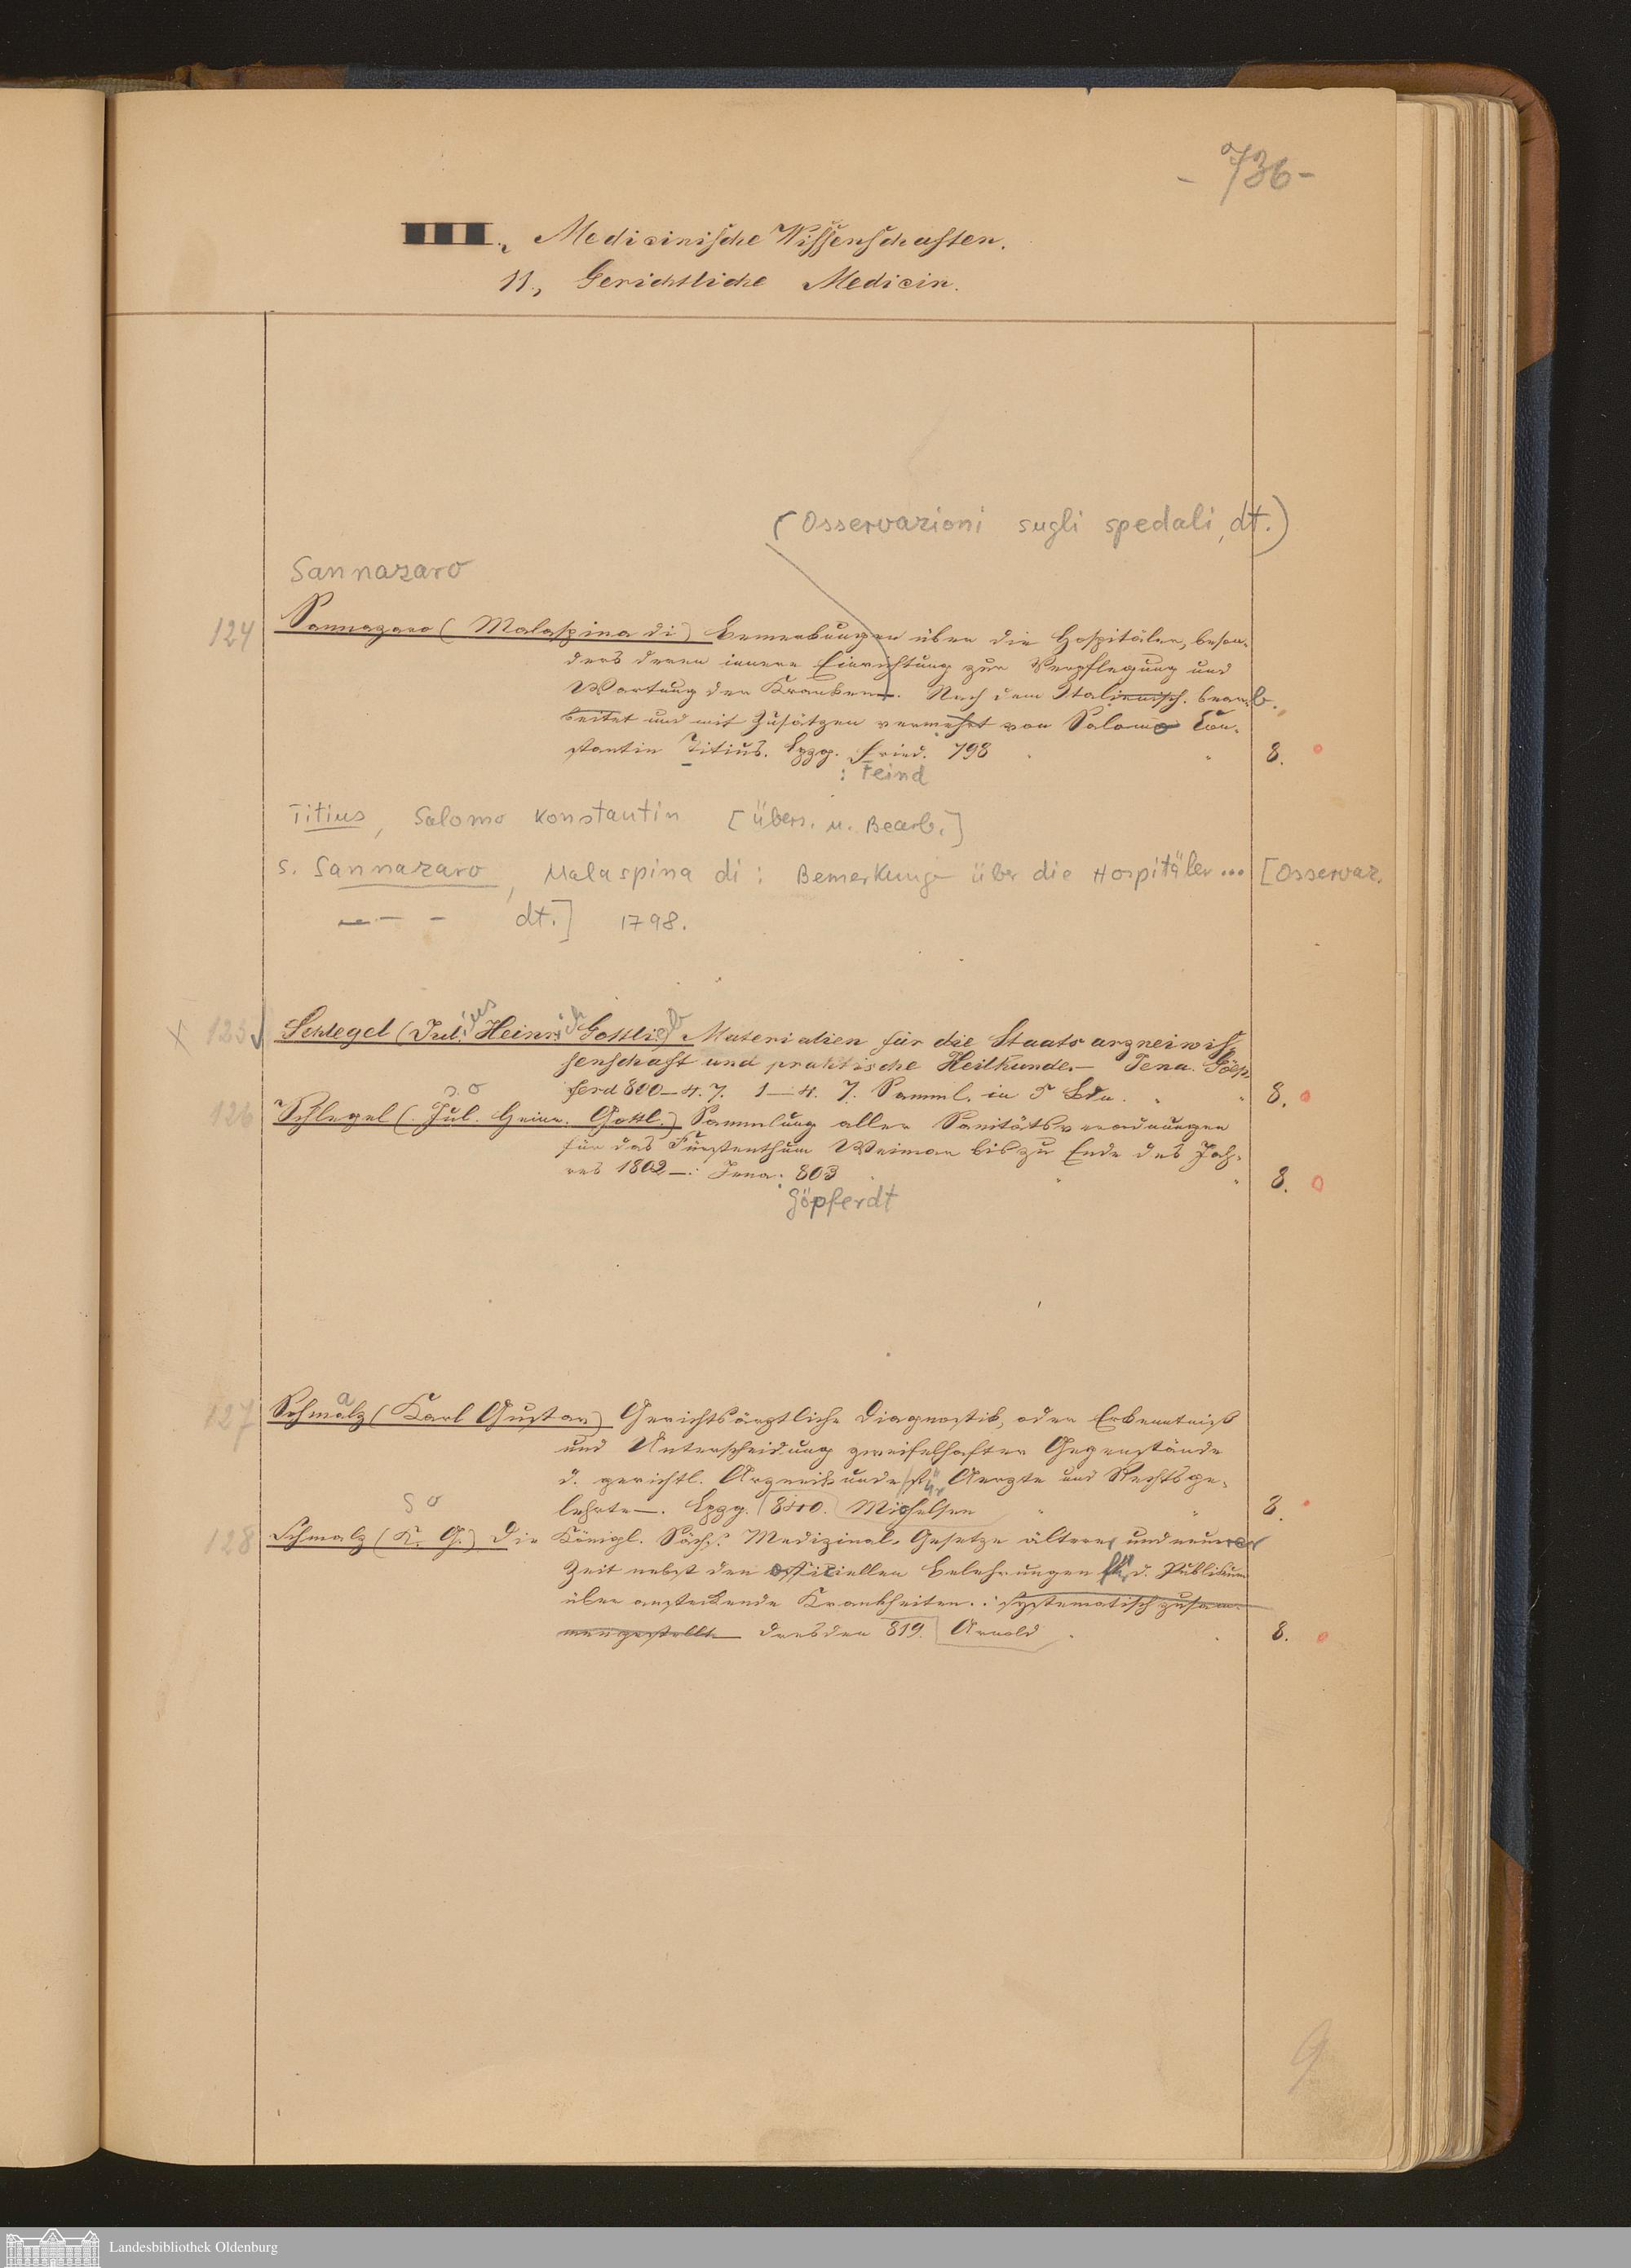 - 736 -
III., Medicinische Wissenschaften.
11., Gerichtliche Medicin.
(Osservazioni sugli spedali, dt.)
Sannazaro
124 Sannazaro (Malaspina di) Bemerkungen über die Hospitäler, beson-
ders deren innere Einrichtung zur Verpflegung und
Wartung der Kranken. Nach dem Italienisch. bearb.
beitet und mit Zusätzen vermehrt von Salomo Con-
stantin Titius. Lpzg. Fried. 798 8.
: Feind
Titius, Salomo Konstantin [Übers. u. Bearb.]
s. Sannazaro, Malaspina di: Bemerkunge über die Hospitäler... [Osservaz.
— - - dt.] 1798.
x 125 Schlegel (Julius Heinrich Gottlieb) Materialien für die Staatsarzneiwis-
senschaft und praktische Heilkunde.— Jena. Göep
ferd 800—4. 7. 1—4. 7. Samml. in 5 Bdn. 8.
so
126 Schlegel (Jul. Heinr. Gottl.) Sammlung aller Sanitätsverordnungen
für das Fürstenthum Weimar bis zu Ende des Jah-
res 1802—: Jena: 803 8.
Göpferdt
127 Schmalz (Karl Gustav) Gerichtsärztliche Diagnostik, oder Erkenntniß
und Unterscheidung zweifelhafter Gegenstände
d. gerichtl. Arzneikunde für Aerzte und Rechtsge-
lehrte—. Lpzg. Michelsen 8.
so
128 Schmalz (K. G.) Die Königl. Sächs. Medizinal-Gesetze älterer und neuerer
Zeit nebst den officiellen Belehrungen für d. Publikum
über ansteckende Krankheiten.: systematisch zusam-
mengestellt— Dresden 819. Arnold 8.
9
Landesbibliothek Oldenburg